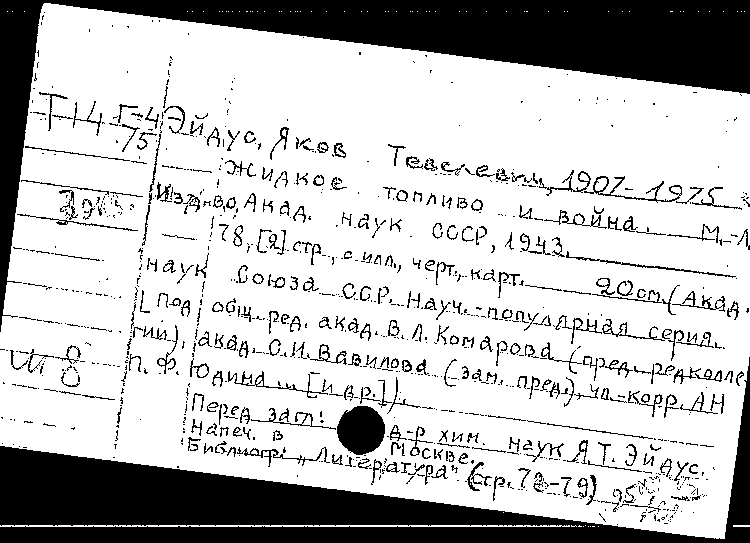 Т14 Г-4/75 Эйдус, Яков Тевелевич, 1907-1975
Жидкое топливо и война. М.-Л
Изд-во, Акад. наук СССР, 1943.
3 экз.
78, [2] стр., с илл., черт., карт. 20 см. (Акад.
наук Союза ССР. Науч.-популярная серия.
[Под общ. ред. акад. В.Л. Комарова (пред. редколле
гии), акад. С.И. Вавилова (зам. пред.), чл.-корр. АН
П.Ф. Юдина ... [и др.]).
Ш 8
Перед загл: д-р хим. наук Я.Т. Эйдус.
Напеч. в Москве.
Библиогр: „Литература" (стр. 78-79)